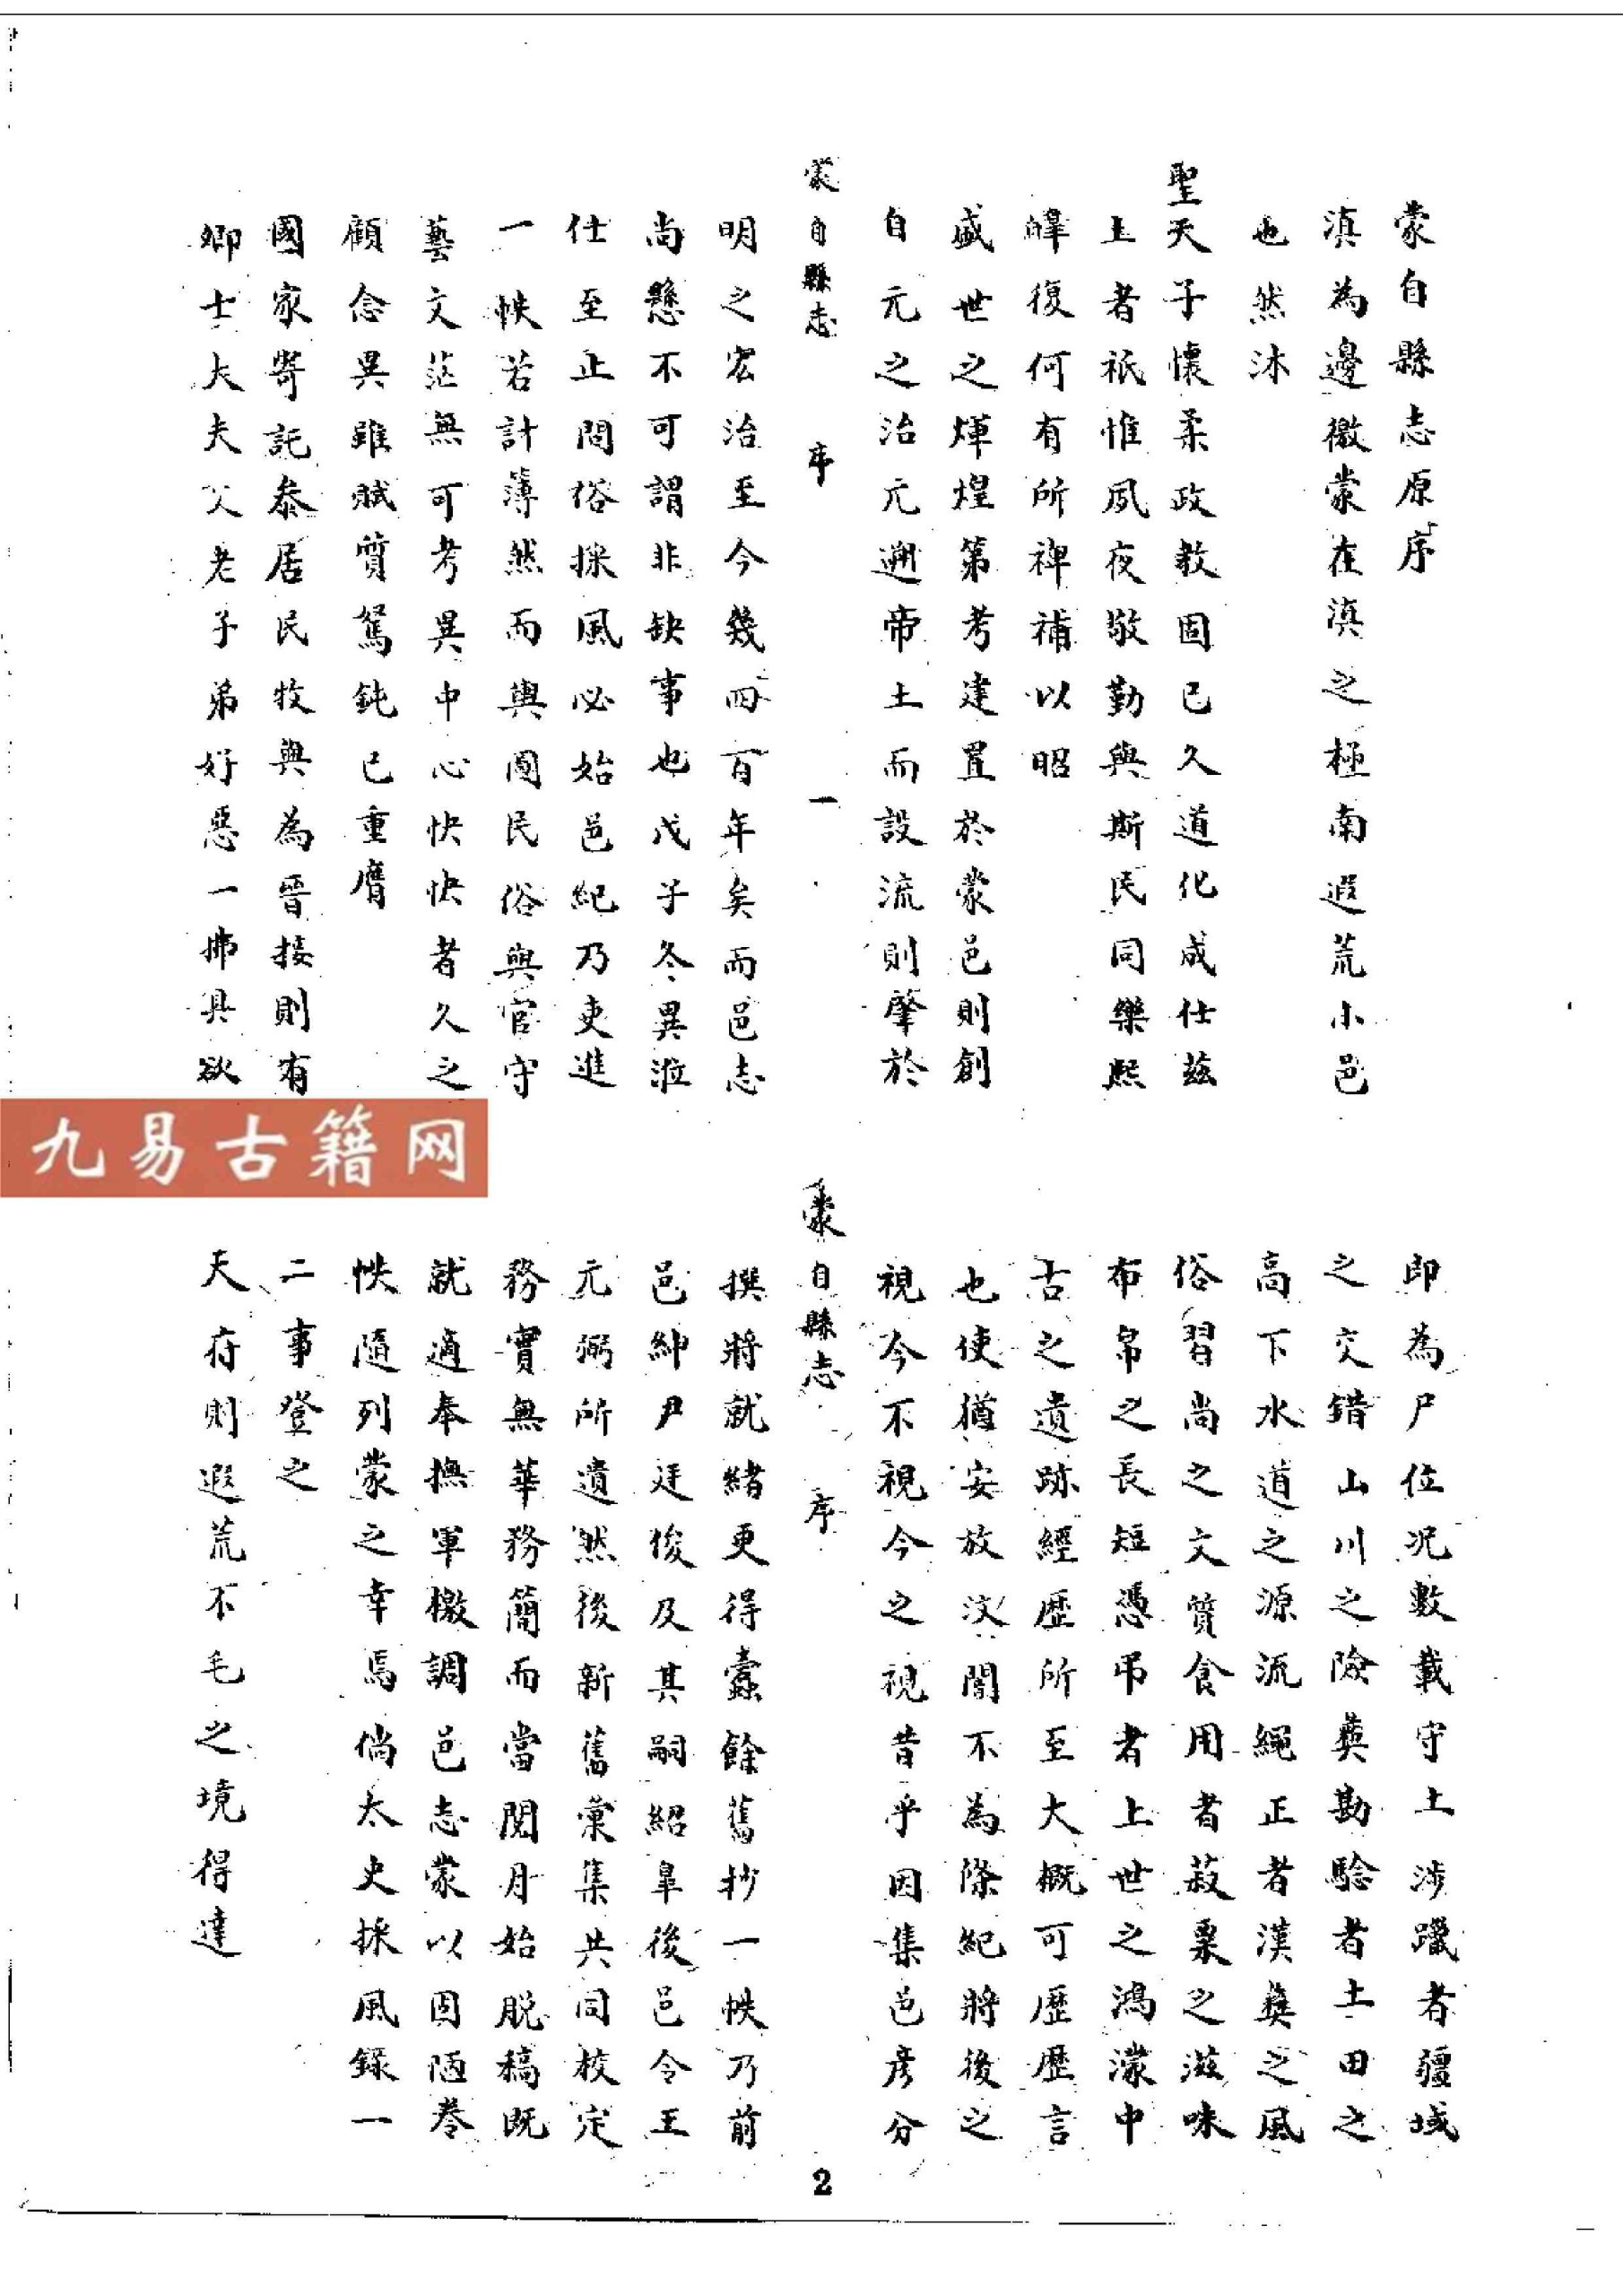 蒙自縣志原序
滇為邊徼蒙在滇之極南遐荒小邑
也然沐
聖天子懷柔政教固已久道化成仕茲
土者祇惟夙夜敬勤與斯民同樂熙
皞復何有所裨補以昭
盛世之煇煌第考建置於蒙邑則創
自元之治元遡帝土而設流則肇於
蒙自縣志 序 一
明之宏治至今幾四百年矣而邑志
尚懸不可謂非缺事也戊子冬異涖
仕至止問俗採風必始邑紀乃吏進
一帙若計薄然而輿圖民俗與官守
藝文茫無可考異中心怏怏者久之
顧念異雖賦質駑鈍已重膺
國家寄託忝居民牧與為晉接則有
鄉士大夫父老子弟好惡一拂具欲
即為尸位況數載守土涉躐者疆域
之交錯山川之險彝勘騐者土田之
高下水道之源流繩正者漢彝之風
俗習尚之文質食用者菽粟之滋味
布帛之長短憑弔者上世之鴻濛中
古之遺跡經歷所至大概可歷歷言
也使猶安放汶闇不為條紀將後之
視今不視今之視昔乎因集邑彥分
蒙自縣志 序
撰將就緒更得蠹餘舊抄一帙乃前
邑紳尹廷俊及其嗣紹皐後邑令王
元弼所遺然後新舊彙集共同校定
務實無華務簡而當閱月始脱稿既
就適奉撫軍檄調邑志蒙以固陋卷
帙隨列蒙之幸焉倘太史採風錄一
二事登之
天府則遐荒不毛之境得達
2
九易古籍网